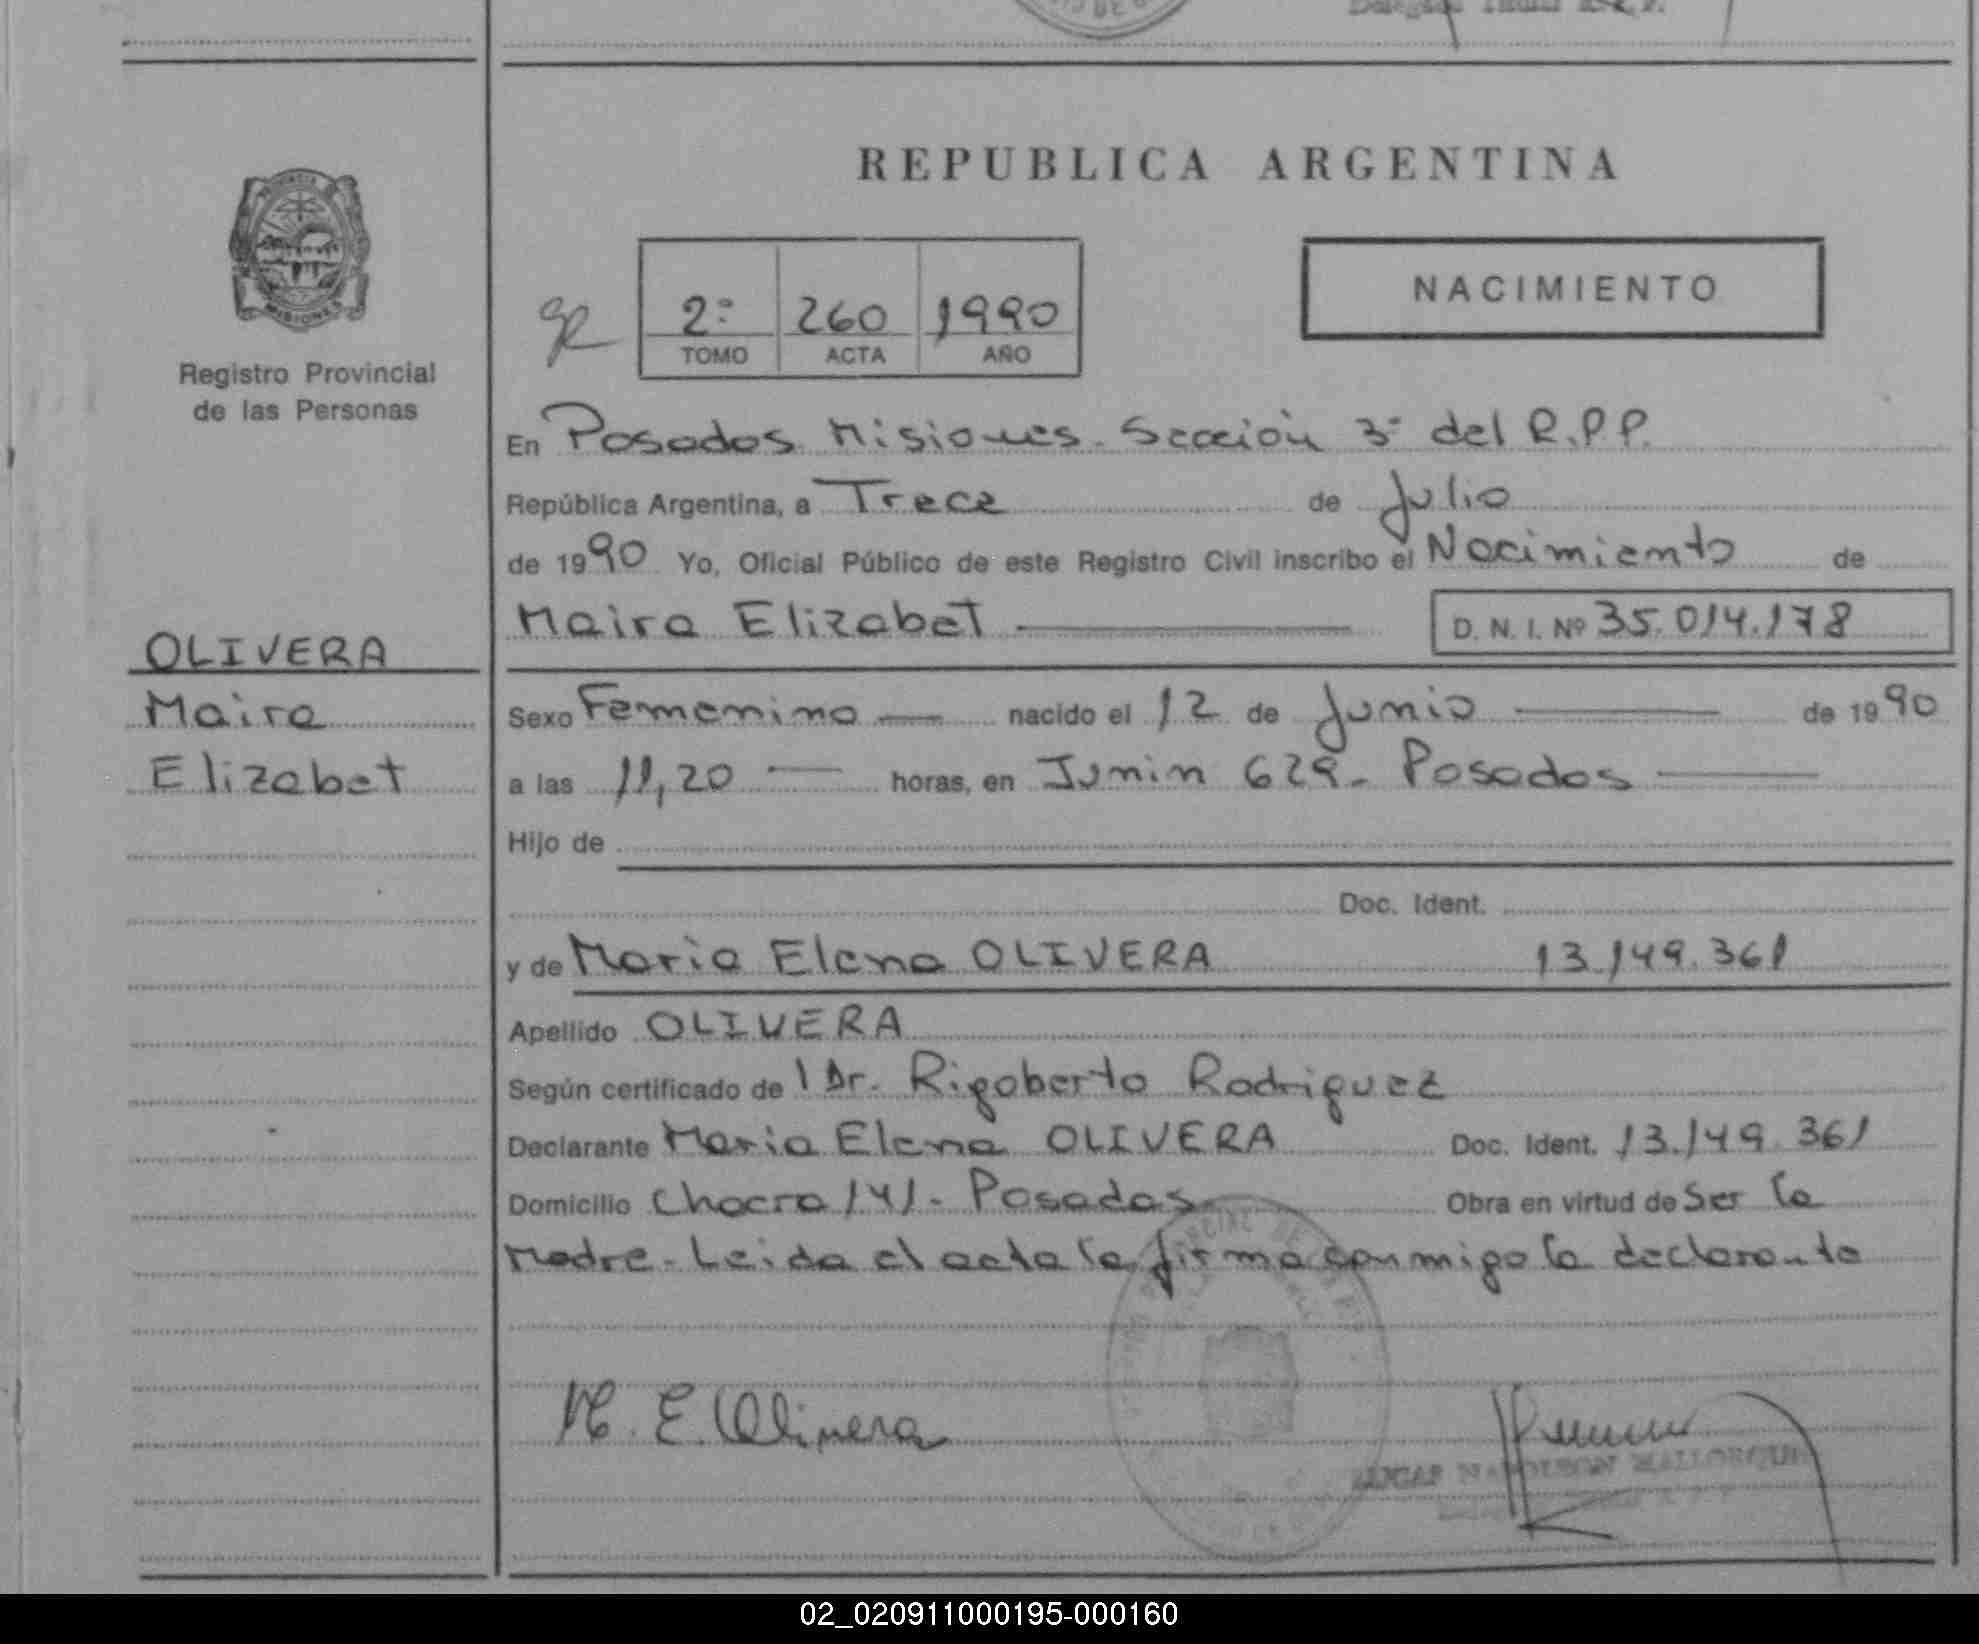 REPUBLICA ARGENTINA
PROVINCIA DE
MISIONES
Registro Provincial
de las Personas
2º 260 1990
TOMO ACTA AÑO
NACIMIENTO
En Posadas Misiones. Sección 3ª del R.P.P.
República Argentina, a Trece de Julio
de 1990 Yo, Oficial Público de este Registro Civil inscribo el Nacimiento de
Maira Elizabet D. N. I. Nº 35.014.178
OLIVERA
Maira
Elizabet
Sexo Femenino nacido el 12 de Junio de 1990
a las 11,20 horas, en Junin 629. Posadas
Hijo de
Doc. Ident.
y de Maria Elena OLIVERA 13.149.361
Apellido OLIVERA
Según certificado de l Dr. Rigoberto Rodriguez
Declarante Maria Elena OLIVERA Doc. Ident. 13.149.361
Domicilio Chacra 141. Posadas Obra en virtud de Ser la
Madre. Leida el acta la firma conmigo la declarante
M. E. Olivera
NAPOLEON MALLORQUIN
02_020911000195-000160